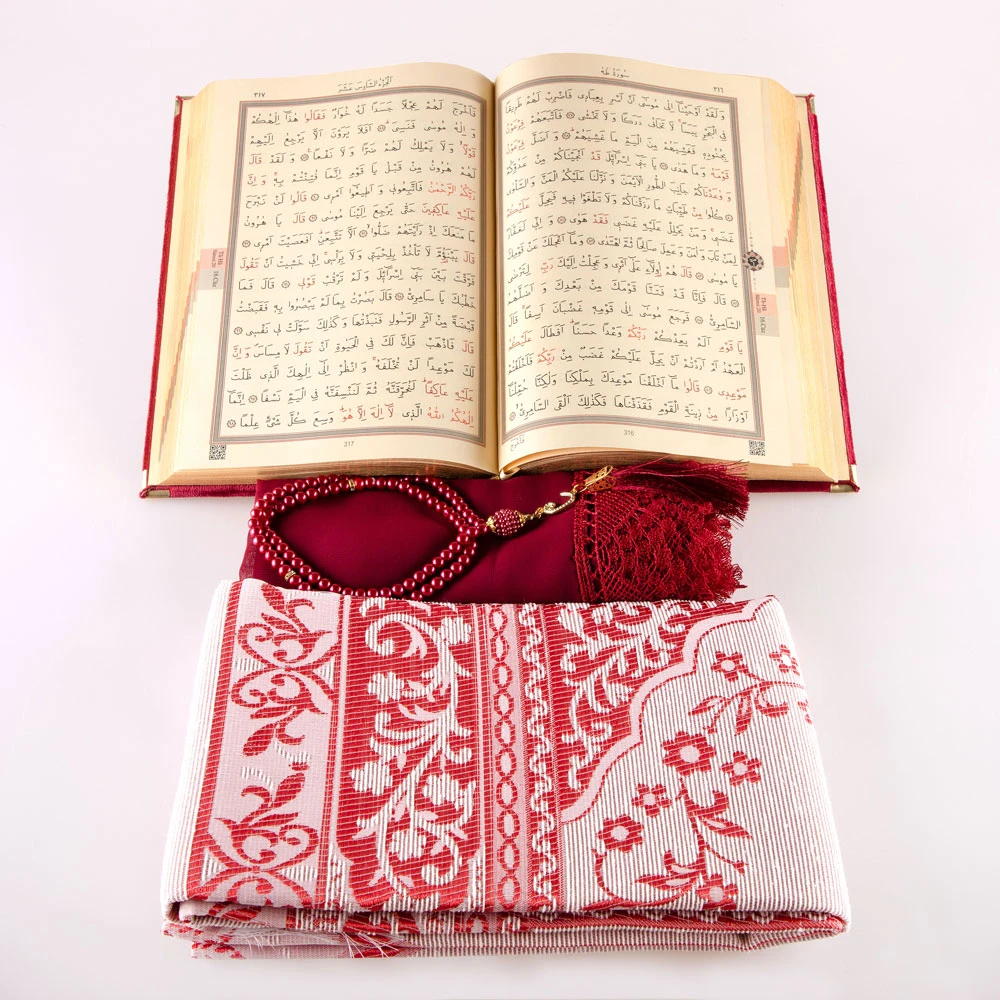 سُورَةُ طٰهٰ
٣١٦
وَلَقَدْ اَوْحَيْنَٓا اِلٰى مُوسٰٓى اَنْ اَسْرِ بِعِبَادٖى فَاضْرِبْ لَهُمْ طَرٖيقًا
فِى الْبَحْرِ يَبَسًاۙ لَا تَخَافُ دَرَكًا وَلَا تَخْشٰى ۞ فَاَتْبَعَهُمْ فِرْعَوْنُ
بِجُنُودِهٖ فَغَشِيَهُمْ مِنَ الْيَمِّ مَا غَشِيَهُمْ ۞ وَاَضَلَّ فِرْعَوْنُ
قَوْمَهُ وَمَا هَدٰى ۞ يَا بَنٖٓى اِسْرَٓائٖلَ قَدْ اَنْجَيْنَاكُمْ مِنْ عَدُوِّكُمْ
وَوٰعَدْنَاكُمْ جَانِبَ الطُّورِ الْاَيْمَنَ وَنَزَّلْنَا عَلَيْكُمُ الْمَنَّ وَالسَّلْوٰى
۞ كُلُوا مِنْ طَيِّبَاتِ مَا رَزَقْنَاكُمْ وَلَا تَطْغَوْا فٖيهِ فَيَحِلَّ عَلَيْكُمْ
غَضَبٖى وَمَنْ يَحْلِلْ عَلَيْهِ غَضَبٖى فَقَدْ هَوٰى ۞ وَاِنّٖى لَغَفَّارٌ
لِمَنْ تَابَ وَاٰمَنَ وَعَمِلَ صَالِحًا ثُمَّ اهْتَدٰى ۞ وَمَٓا اَعْجَلَكَ عَنْ قَوْمِكَ
يَا مُوسٰى ۞ قَالَ هُمْ اُولَٓاءِ عَلٰٓى اَثَرٖى وَعَجِلْتُ اِلَيْكَ رَبِّ لِتَرْضٰى
۞ قَالَ فَاِنَّا قَدْ فَتَنَّا قَوْمَكَ مِنْ بَعْدِكَ وَاَضَلَّهُمُ
السَّامِرِىُّ ۞ فَرَجَعَ مُوسٰٓى اِلٰى قَوْمِهٖ غَضْبَانَ اَسِفًا قَالَ
يَا قَوْمِ اَلَمْ يَعِدْكُمْ رَبُّكُمْ وَعْدًا حَسَنًا اَفَطَالَ عَلَيْكُمُ
الْعَهْدُ اَمْ اَرَدْتُمْ اَنْ يَحِلَّ عَلَيْكُمْ غَضَبٌ مِنْ رَبِّكُمْ فَاَخْلَفْتُمْ
مَوْعِدٖى ۞ قَالُوا مَٓا اَخْلَفْنَا مَوْعِدَكَ بِمَلْكِنَا وَلٰكِنَّا حُمِّلْنَٓا
اَوْزَارًا مِنْ زٖينَةِ الْقَوْمِ فَقَذَفْنَاهَا فَكَذٰلِكَ اَلْقَى السَّامِرِىُّ ۞
فَاَخْرَجَ
316
اَلْجُزْءُ السَّادِسَ عَشَرَ
٣١٧
فَاَخْرَجَ لَهُمْ عِجْلًا جَسَدًا لَهُ خُوَارٌ فَقَالُوا هٰذَٓا اِلٰهُكُمْ
وَاِلٰهُ مُوسٰى فَنَسِىَ ۞ اَفَلَا يَرَوْنَ اَلَّا يَرْجِعُ اِلَيْهِمْ
قَوْلًا وَلَا يَمْلِكُ لَهُمْ ضَرًّا وَلَا نَفْعًا ۞ وَلَقَدْ قَالَ
لَهُمْ هٰرُونُ مِنْ قَبْلُ يَا قَوْمِ اِنَّمَا فُتِنْتُمْ بِهٖ وَاِنَّ
رَبَّكُمُ الرَّحْمٰنُ فَاتَّبِعُونٖى وَاَطٖيعُٓوا اَمْرٖى ۞ قَالُوا لَنْ نَبْرَحَ
عَلَيْهِ عَاكِفٖينَ حَتّٰى يَرْجِعَ اِلَيْنَا مُوسٰى ۞ قَالَ يَا هٰرُونُ
مَا مَنَعَكَ اِذْ رَاَيْتَهُمْ ضَلُّوا ۞ اَلَّا تَتَّبِعَنِ اَفَعَصَيْتَ اَمْرٖى ۞
قَالَ يَبْنَؤُمَّ لَا تَأْخُذْ بِلِحْيَتٖى وَلَا بِرَأْسٖى اِنّٖى خَشٖيتُ اَنْ تَقُولَ
فَرَّقْتَ بَيْنَ بَنٖٓى اِسْرَٓائٖلَ وَلَمْ تَرْقُبْ قَوْلٖى ۞ قَالَ فَمَا
خَطْبُكَ يَا سَامِرِىُّ ۞ قَالَ بَصُرْتُ بِمَا لَمْ يَبْصُرُوا بِهٖ فَقَبَضْتُ
قَبْضَةً مِنْ اَثَرِ الرَّسُولِ فَنَبَذْتُهَا وَكَذٰلِكَ سَوَّلَتْ لٖى نَفْسٖى ۞
قَالَ فَاذْهَبْ فَاِنَّ لَكَ فِى الْحَيٰوةِ اَنْ تَقُولَ لَا مِسَاسَ وَاِنَّ
لَكَ مَوْعِدًا لَنْ تُخْلَفَهُ وَانْظُرْ اِلٰٓى اِلٰهِكَ الَّذٖى ظَلْتَ
عَلَيْهِ عَاكِفًا لَنُحَرِّقَنَّهُ ثُمَّ لَنَنْسِفَنَّهُ فِى الْيَمِّ نَسْفًا ۞ اِنَّمَٓا
اِلٰهُكُمُ اللّٰهُ الَّذٖى لَٓا اِلٰهَ اِلَّا هُوَ وَسِعَ كُلَّ شَىْءٍ عِلْمًا ۞
317